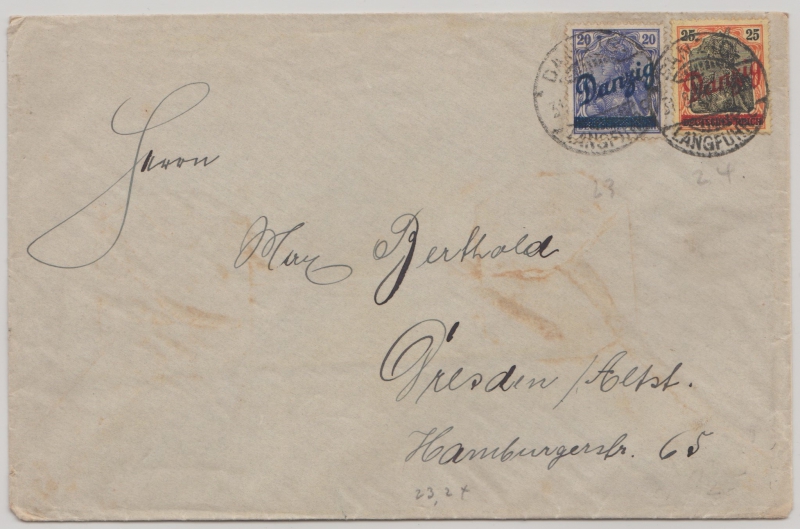 20 20
Danzig
25 25
Danzig
LANGFUHR
LANGFUHR
23
24.
Herrn
Max Berthold
Dresden/Altst.
Hamburgerstr. 65
23,24